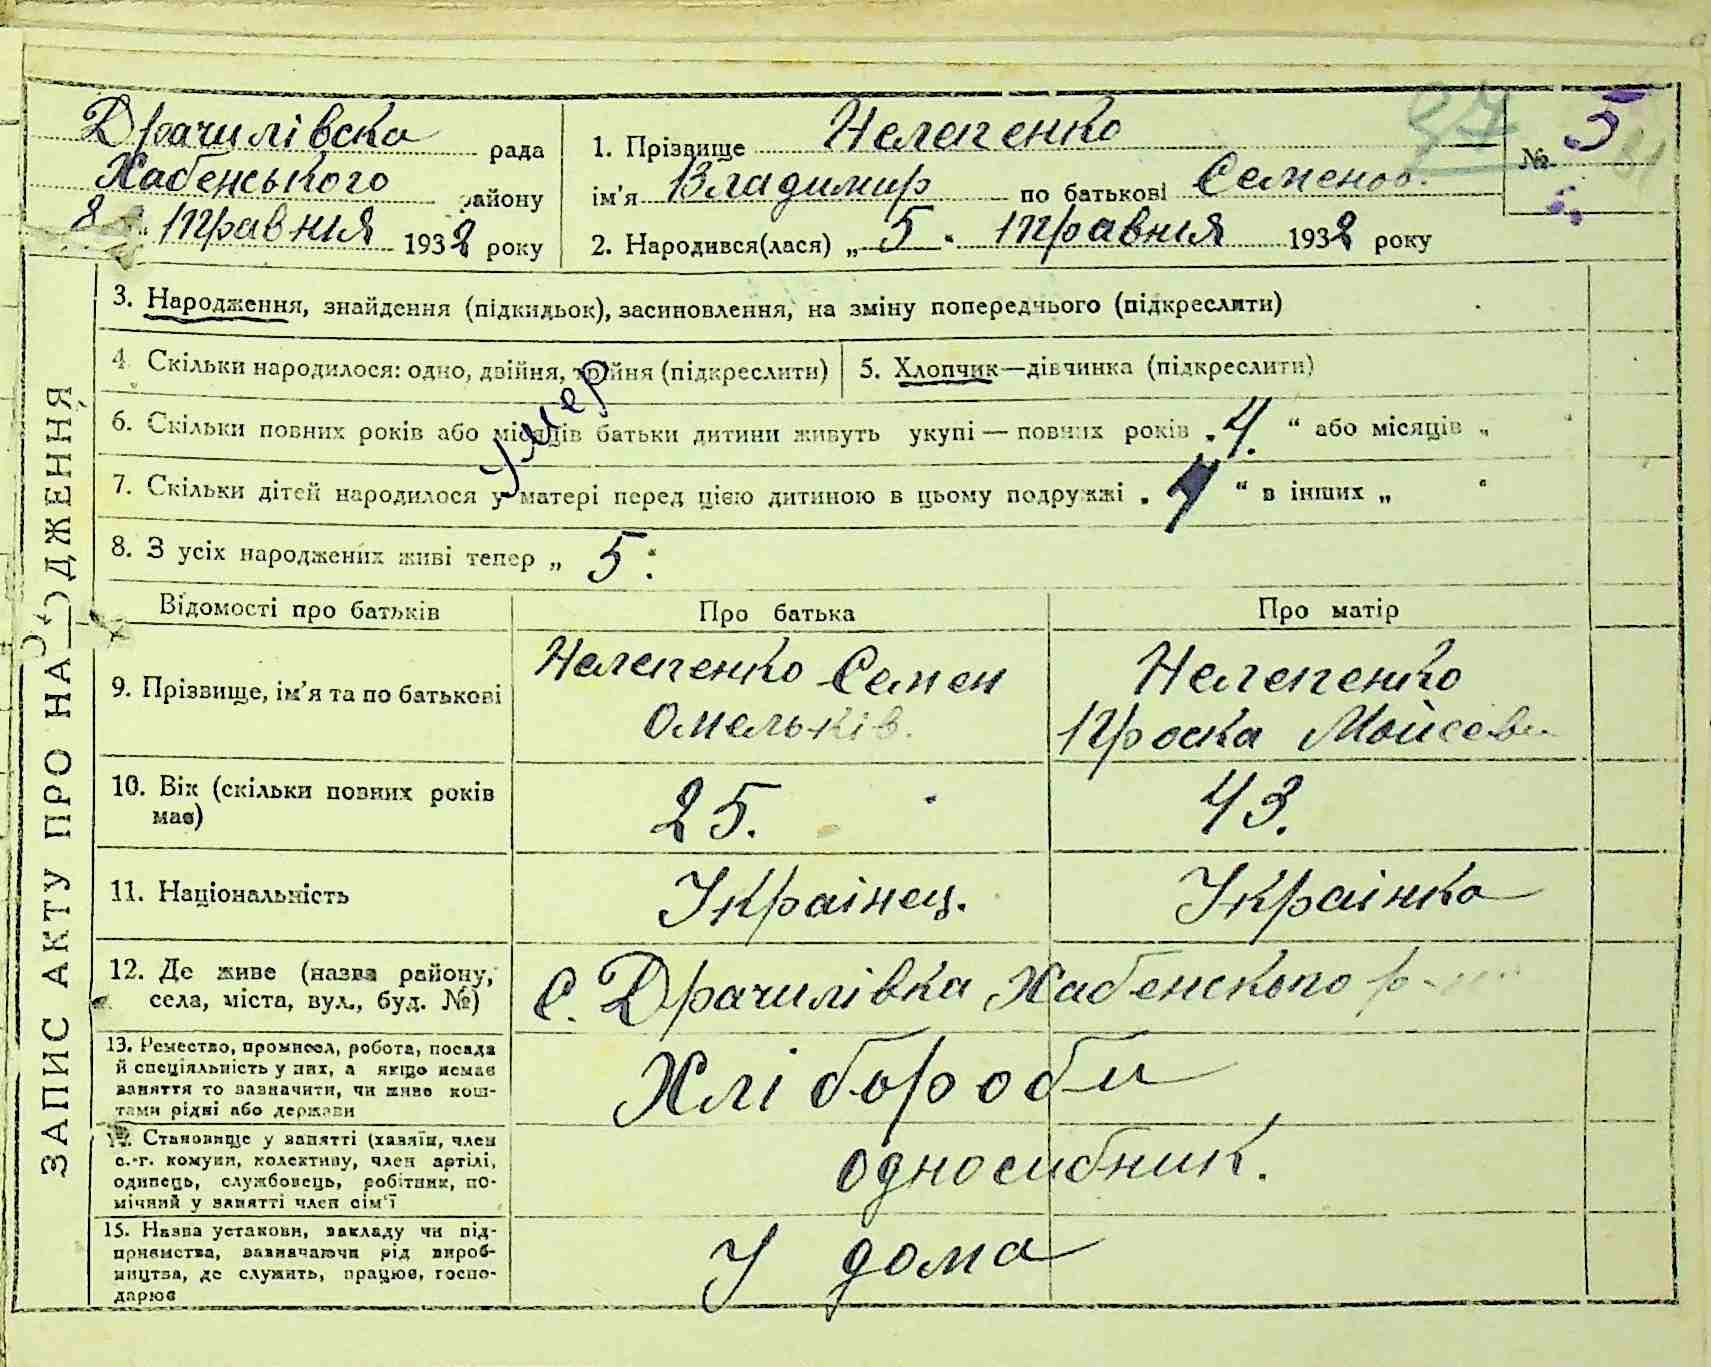 Драчилівска рада
Хабенського району
8 Травня 1932 року
1. Прізвище Нелепенко
ім'я Владимир по батькові Семенов.
2. Народився(лася) „ 5 " Травня 1932 року
37
№ 5
3. Народження, знайдення (підкидьок), засиновлення, на зміну попереднього (підкреслити)
4. Скільки народилося: одно, двійня, трійня (підкреслити)
5. Хлопчик—дівчинка (підкреслити)
умер
6. Скільки повних років або місяців батьки дитини живуть укупі — повних років „ 4. " або місяців „ "
7. Скільки дітей народилося у матері перед цією дитиною в цьому подружжі „ 4 " в інших „ "
8. З усіх народжених живі тепер „ 5. "
ЗАПИС АКТУ ПРО НАРОДЖЕННЯ
Відомості про батьків
Про батька
Про матір
9. Прізвище, ім'я та по батькові
Нелепенко Семен
Омельків.
Нелепенко
Проска Мойсеев
10. Вік (скільки повних років
має)
25.
43.
11. Національність
Украінец.
Украінка
12. Де живе (назва району,
села, міста, вул., буд. №)
С. Драчилівка Хабенского р-
13. Ремество, промисел, робота, посада
й спеціяльність у них, а якщо немає
заняття то зазначити, чи живе кош-
тами рідні або держави
Хлібороби
14. Становище у занятті (хазяїн, член
с.-г. комуни, колективу, член артілі,
одинець, службовець, робітник, по-
мічний у занятті член сім'ї
односибник.
15. Назва установи, закладу чи під-
приємства, зазначаючи рід вироб-
ництва, де служить, працює, госпо-
дарює
У дома